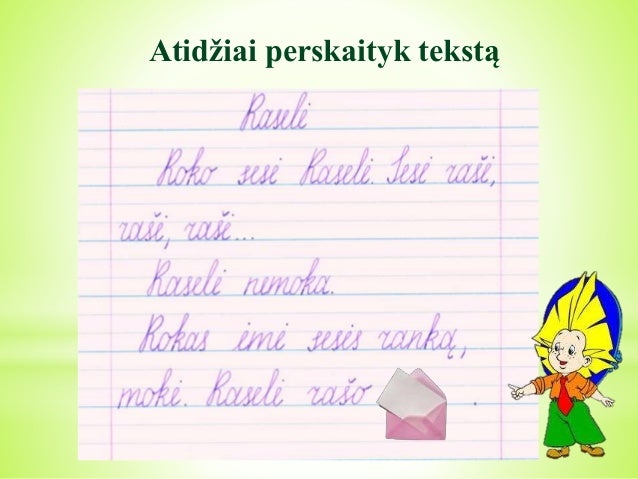 Atidžiai perskaityk tekstą
Raselė
Roko sesė Raselė. Sesė rašė,
rašė, rašė...
Raselė nemoka.
Rokas ėmė sesės ranką,
mokė. Raselė rašo .